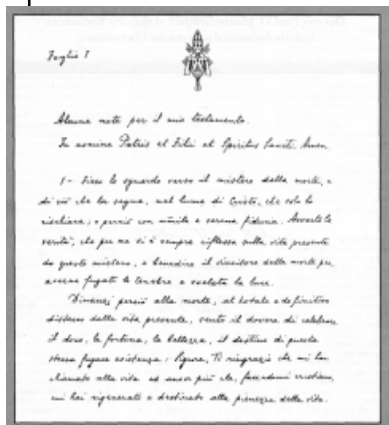 Foglio 1
Alcune note per il mio testamento.
In nomine Patris et Filii et Spiritus Sancti. Amen.
1- Fisso lo sguardo verso il mistero della morte, e
di ciò che la segue, nel lume di Cristo, che solo la
rischiara; e perciò con umile e serena fiducia. Avverto la
verità, che per me si è sempre riflessa sulla vita presente
da questo mistero, e benedico il vincitore della morte per
averne fugate le tenebre e svelata la luce.
Dinanzi perciò alla morte, al totale e definitivo
distacco dalla vita presente, sento il dovere di celebrare
il dono, la fortuna, la bellezza, il destino di questa
stessa fugace esistenza: Signore, Ti ringrazio che mi hai
chiamato alla vita ed ancor più che, facendomi cristiano,
mi hai rigenerato e destinato alla pienezza della vita.